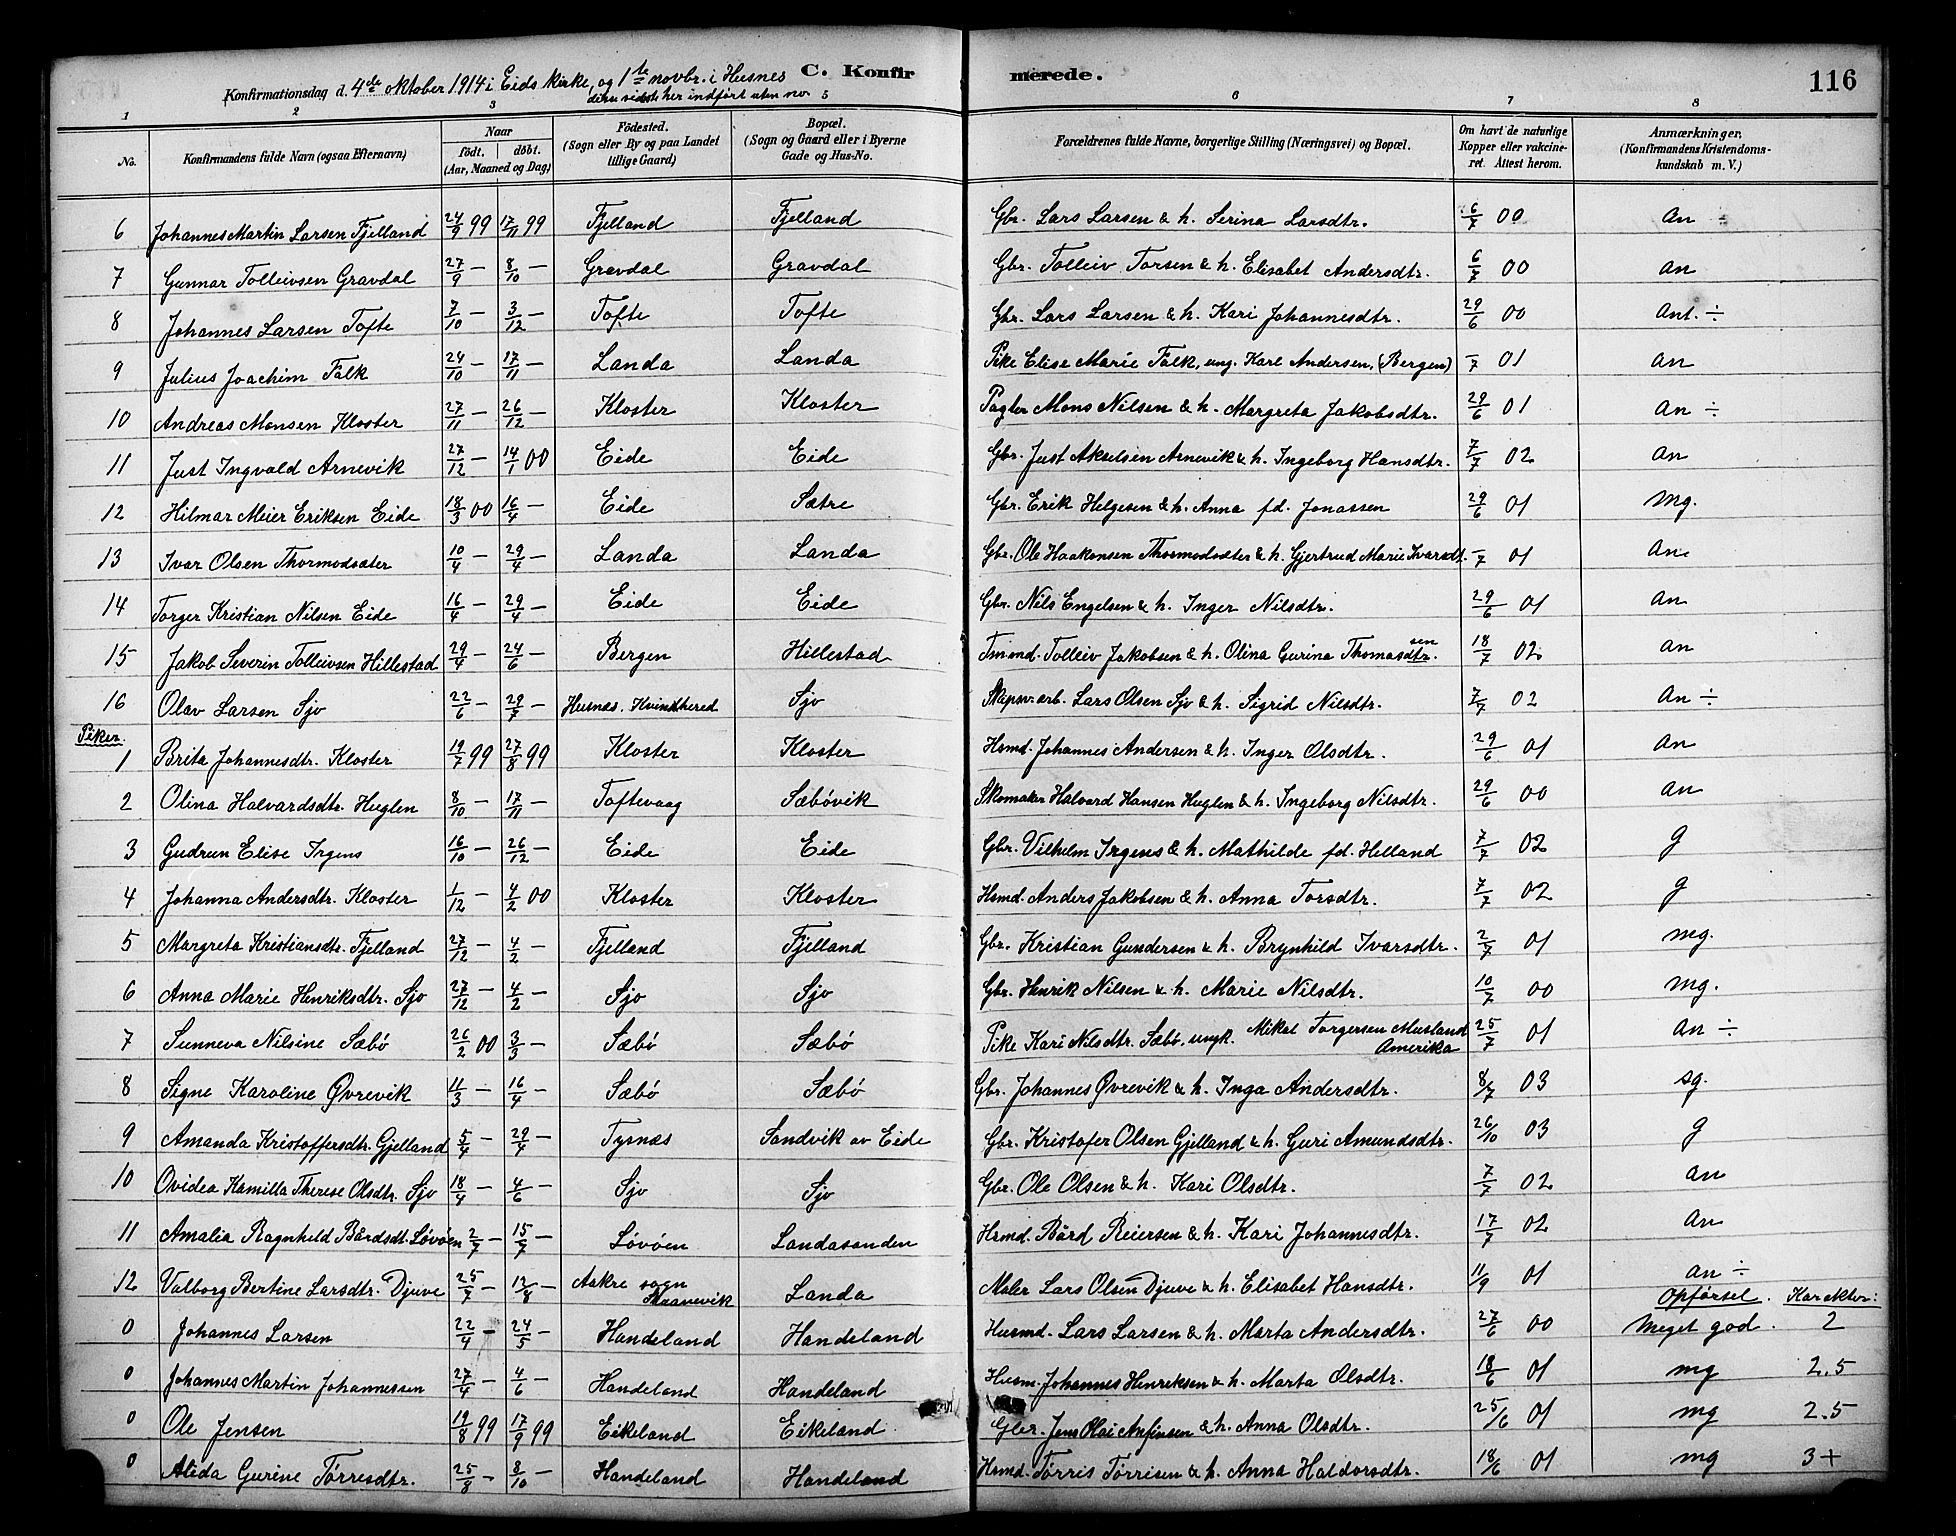 C. Konfirmerede.
116
Konfirmationsdag d. 4de oktober 1914 i Eids kirke, og 1te novbr. i Husnes
disse sidste her indført uten no.
1 2 3 4 5 6 7 8
No. | Konfirmandens fulde Navn (ogsaa Efternavn) | Naar født. døbt. (Aar, Maaned og Dag) | Födested. (Sogn eller By og paa Landet tillige Gaard) | Bopæl. (Sogn og Gaard eller i Byerne Gade og Hus-No. | Forældrenes fulde Navne, borgerlige Stilling (Næringsvei) og Bopæl. | Om havt de naturlige Kopper eller vaccineret. Attest herom. | Anmærkninger, (Konfirmandens Kristendomskundskab m. V.)
6 Johannes Martin Larsen Fjelland 24/9 99 17/11 99 Fjelland Fjelland Gbr. Lars Larsen & h. Serina Larsdtr. 6/7 00 an ÷
7 Gunnar Tolleivsen Gravdal 27/9 — 8/10 — Gravdal Gravdal Gbr. Tolleiv Torsen & h. Elisabet Andersdtr. 6/7 00 an
8 Johannes Larsen Tofte 7/10 — 3/12 — Tofte Tofte Gbr. Lars Larsen & h. Kari Johannesdtr. 29/6 00 Ant. ÷
9 Julius Joachim Falk 24/10 — 17/11 — Landa Landa Pike Elise Marie Falk, ung. Karl Andersen, (Bergen) –/7 01 an
10 Andreas Monsen Kloster 27/11 — 26/12 — Kloster Kloster Pagter Mons Nilsen & h. Margreta Jakobsdtr. 29/6 01 an ÷
11 Just Ingvald Arnevik 27/12 — 14/1 00 Eide Eide Gbr. Just Akselsen Arnevik & h. Ingeborg Hansdtr. 7/7 02 an
12 Hilmar Meier Eriksen Eide 18/3 00 16/4 — Eide Sætre Gbr. Erik Helgesen & h. Anna fd. Jonassen 29/6 01 Mg.
13 Ivar Olsen Thormodsæter 10/4 — 29/4 — Landa Landa Gbr. Ole Haakonsen Thormodsæter & h. Gjertrud Marie Ivarsdt. –/7 01 An.
14 Torger Kristian Nilsen Eide 16/4 — 29/4 — Eide Eide Gbr. Nils Engelsen & h. Inger Nilsdtr. 29/6 01 an
15 Jakob Severin Tolleivsen Hillestad 29/4 — 24/6 — Bergen Hillestad Tmmd. Tolleiv Jakobsen & h. Olina Gurina Thomasdtr. sen 18/7 02 an
16 Olav Larsen Sjo 22/6 — 29/7 — Husnæs. Kvindhered Sjo Skipsv. arb. Lars Olsen Sjo & h. Sigrid Nilsdtr. 7/7 02 An ÷
Piker.
1 Brita Johannesdtr. Kloster 19/7 99 27/8 99 Kloster Kloster Hsmd. Johannes Andersen & h. Inger Olsdtr. 29/6 01 An
2 Olina Halvardsdtr. Huglen 8/10 — 17/11 — Toftevaag Sæbövik Skomaker Halvard Hansen Huglen & h. Ingeborg Nilsdtr. 29/6 00 an
3 Gudrun Elise Irgens 16/10 — 26/12 — Eide Eide Gbr. Vilhelm Irgens & h. Mathilde fd. Helland 7/7 02 g
4 Johanna Andersdtr. Kloster 1/12 — 4/2 00 Kloster Kloster Hsmd. Anders Jakobsen & h. Anna Torsdtr. 7/7 02 g
5 Margreta Kristiansdtr. Fjelland 27/12 — 4/2 — Fjelland Fjelland Gbr. Kristian Gundersen & h. Brynhild Ivarsdtr. 2/7 01 mg.
6 Anna Marie Henriksdtr. Sjo 27/12 — 4/2 — Sjo Sjo Gbr. Henrik Nilsen & h. Marie Nilsdtr. 10/7 00 mg.
7 Sunneva Nilsine Sæbö 26/2 00 3/3 — Sæbö Sæbö Pike Kari Nilsdtr. Sæbö, ungk. Mikal Torgersen Musland Amerika 25/7 01 An ÷
8 Signe Karoline Øvrevik 11/3 — 16/4 — Sæbö Sæbö Gbr. Johannes Øvrevik & h. Inga Andersdtr. 8/7 03 sg.
9 Amanda Kristoffersdtr. Gjelland 5/4 — 29/4 — Tysnæs Sandvik av Eide Gbr. Kristofer Olsen Gjelland & h. Guri Amundsdtr. 26/10 03 g
10 Ovidea Kamilla Therese Olsdtr. Sjo 18/4 — 4/6 — Sjo Sjo Gbr. Ole Olsen & h. Kari Olsdtr. 7/7 02 an
11 Amalia Ragnhild Bårdsdt. Lövöen 2/7 — 15/7 — Lövöen Landasanden Hsmd. Bård Reiersen & h. Kari Johannesdtr. 17/7 02 An
12 Valborg Bertine Larsdtr. Djuve 25/7 — 12/8 — Aakre sogn Skaanevik Landa Maler Lars Olsen Djuve & h. Elisabet Hansdtr. 11/9 01 an ÷
Opförsel. Karakter:
0 Johannes Larsen 22/4 — 24/5 — Handeland Handeland Husmd. Lars Larsen & h. Marta Andersdtr. 27/6 00 Meget god. 2
0 Johannes Martin Johannessen 27/4 — 4/6 — Handeland Handeland Husm. Johannes Henriksen & h. Marta Olsdtr. 18/6 01 mg 2.5
0 Ole Jensen 19/8 99 17/9 99 Eikeland Eikeland Gbr. Jens Olai Anfinsen & h. Anna Olsdtr. 25/6 01 mg 2.5
0 Alida Gurine Tørresdtr. 25/8 — 8/10 — Handeland Handeland Hsmd. Tørris Tørrisen & h. Anna Haldorsdtr. 18/6 01 mg 3+